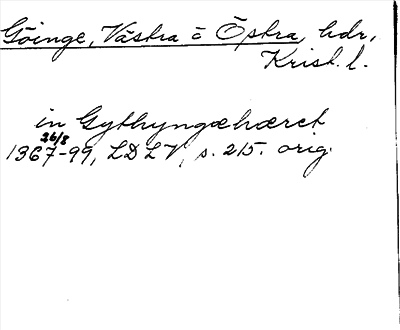 Göinge, Västra o Östra, hdr,
Krist. l.
in Gythyngæhæret
26/8
1367-99, LDLV, s. 215. orig.